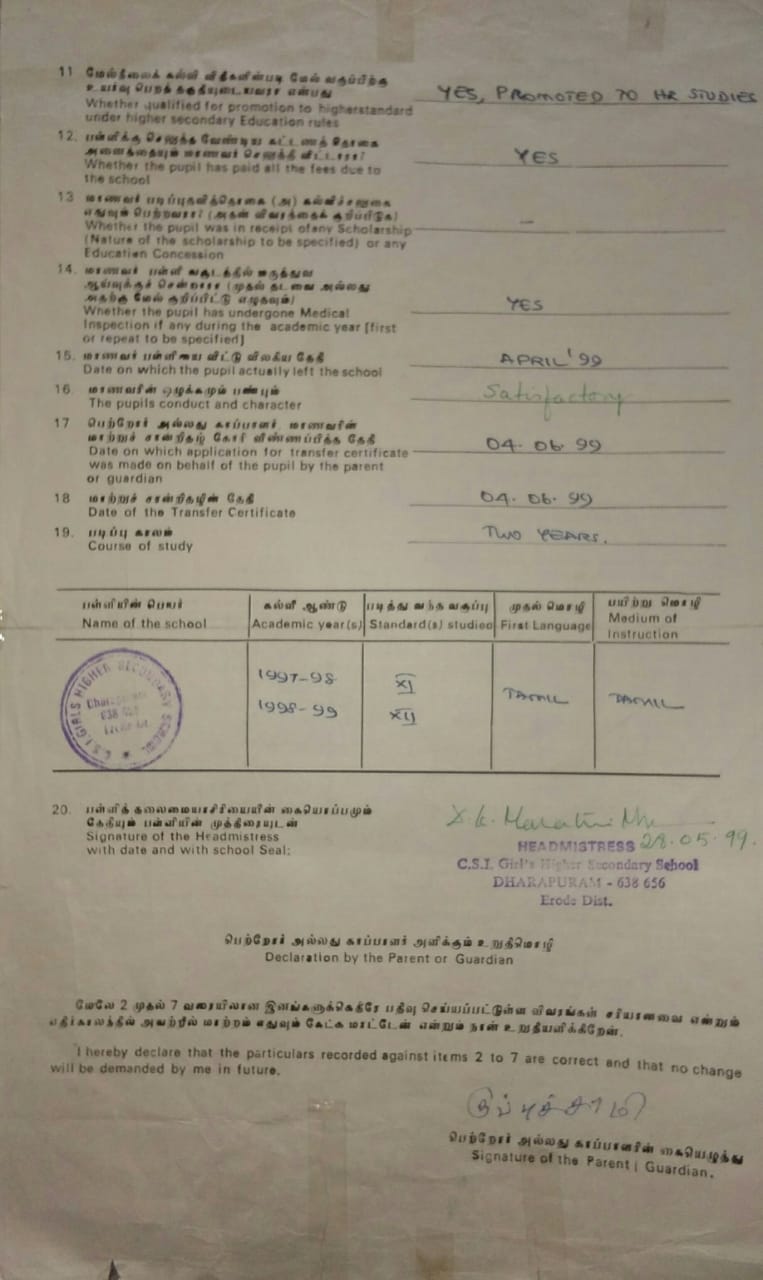 11 மேல்நிலைக் கல்வி விதிகளின்படி மேல் வகுப்பிற்கு
உயர்வு பெறத் தகுதியுடையவரா என்பது
Whether qualified for promotion to higherstandard
under higher secondary Education rules
YES, PROMOTED TO HR STUDIES
12. பள்ளிக்கு செலுத்த வேண்டிய கட்டணத் தொகை
அனைத்தையும் மாணவர் செலுத்தி விட்டாரா?
Whether the pupil has paid all the fees due to
the school
YES
13 மாணவர் படிப்புதவித்தொகை (அ) கல்விச்சலுகை
எதுவும் பெற்றவரா? (அதன் விவரத்தைக் குறிப்பிடுக)
Whether the pupil was in receipt ofany Scholarship
(Nature of the scholarship to be specified) or any
Education Concession
–
14. மாணவர் பள்ளி வருடத்தில் மருத்துவ
ஆய்வுக்குச் சென்றாரா (முதல் தடவை அல்லது
அதற்கு மேல் குறிப்பிட்டு எழுதவும்)
Whether the pupil has undergone Medical
Inspection if any during the academic year [first
or repeat to be specified]
YES
15. மாணவர் பள்ளியை விட்டு விலகிய தேதி
Date on which the pupil actually left the school
APRIL '99
16. மாணவரின் ஒழுக்கமும் பண்பும்
The pupils conduct and character
Satisfactory
17 பெற்றோர் அல்லது காப்பாளர், மாணவரின்
மாற்றுச் சான்றிதழ் கோரி விண்ணப்பித்த தேதி
Date on which application for transfer certificate
was made on behalf of the pupil by the parent
or guardian
04.06.99
18 மாற்றுச் சான்றிதழின் தேதி
Date of the Transfer Certificate
04.06.99
19. படிப்பு காலம்
Course of study
TWO YEARS.
பள்ளியின் பெயர்
Name of the school
கல்வீ ஆண்டு
Academic year(s)
படித்து வந்த வகுப்பு
Standard(s) studied
முதல் மொழி
First Language
பயிற்று மொழி
Medium of
Instruction
C.S.I. GIRLS HIGHER SECONDARY SCHOOL
1997-98
1998-99
XI
XII
TAMIL
TAMIL
20. பள்ளித் தலைமையாசிரியையின் கையொப்பமும்
தேதியும் பள்ளியின் முத்திரையுடன்
Signature of the Headmistress
with date and with school Seal:
28.05.99.
HEADMISTRESS
C.S.I. Girl's Higher Secondary School
DHARAPURAM - 638 656
Erode Dist.
பெற்றோர் அல்லது காப்பாளர் அளிக்கும் உறுதிமொழி
Declaration by the Parent or Guardian
மேலே 2 முதல் 7 வரையிலான இனங்களுக்கெதிரே பதிவு செய்யப்பட்டுள்ள விவரங்கள் சரியானவை என்றும்
எதிர்காலத்தில் அவற்றில் மாற்றம் எதுவும் கேட்க மாட்டேன் என்றும் நான் உறுதியளிக்கிறேன்.
I hereby declare that the particulars recorded against items 2 to 7 are correct and that no change
will be demanded by me in future.
குப்புச்சாமி
பெற்றோர் அல்லது காப்பாளரின் கையெழுத்து
Signature of the Parent | Guardian.